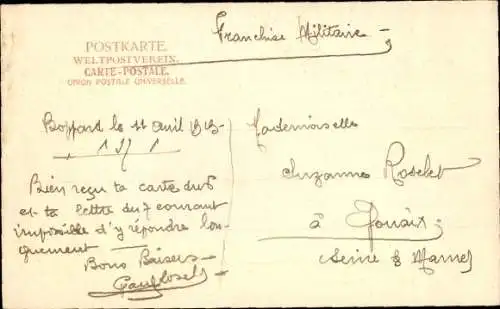 Franchise Militaire -
POSTKARTE.
WELTPOSTVEREIN.
CARTE-POSTALE.
UNION POSTALE UNIVERSELLE.
Boppard le 11 avril 1919-
Bien reçu ta carte du 6
et ta lettre du 7 courant
impossible d'y répondre lon-
guement
Bons Baisers -
Mademoiselle
Suzanne Roselet
à Jouaix
Seine & Marne